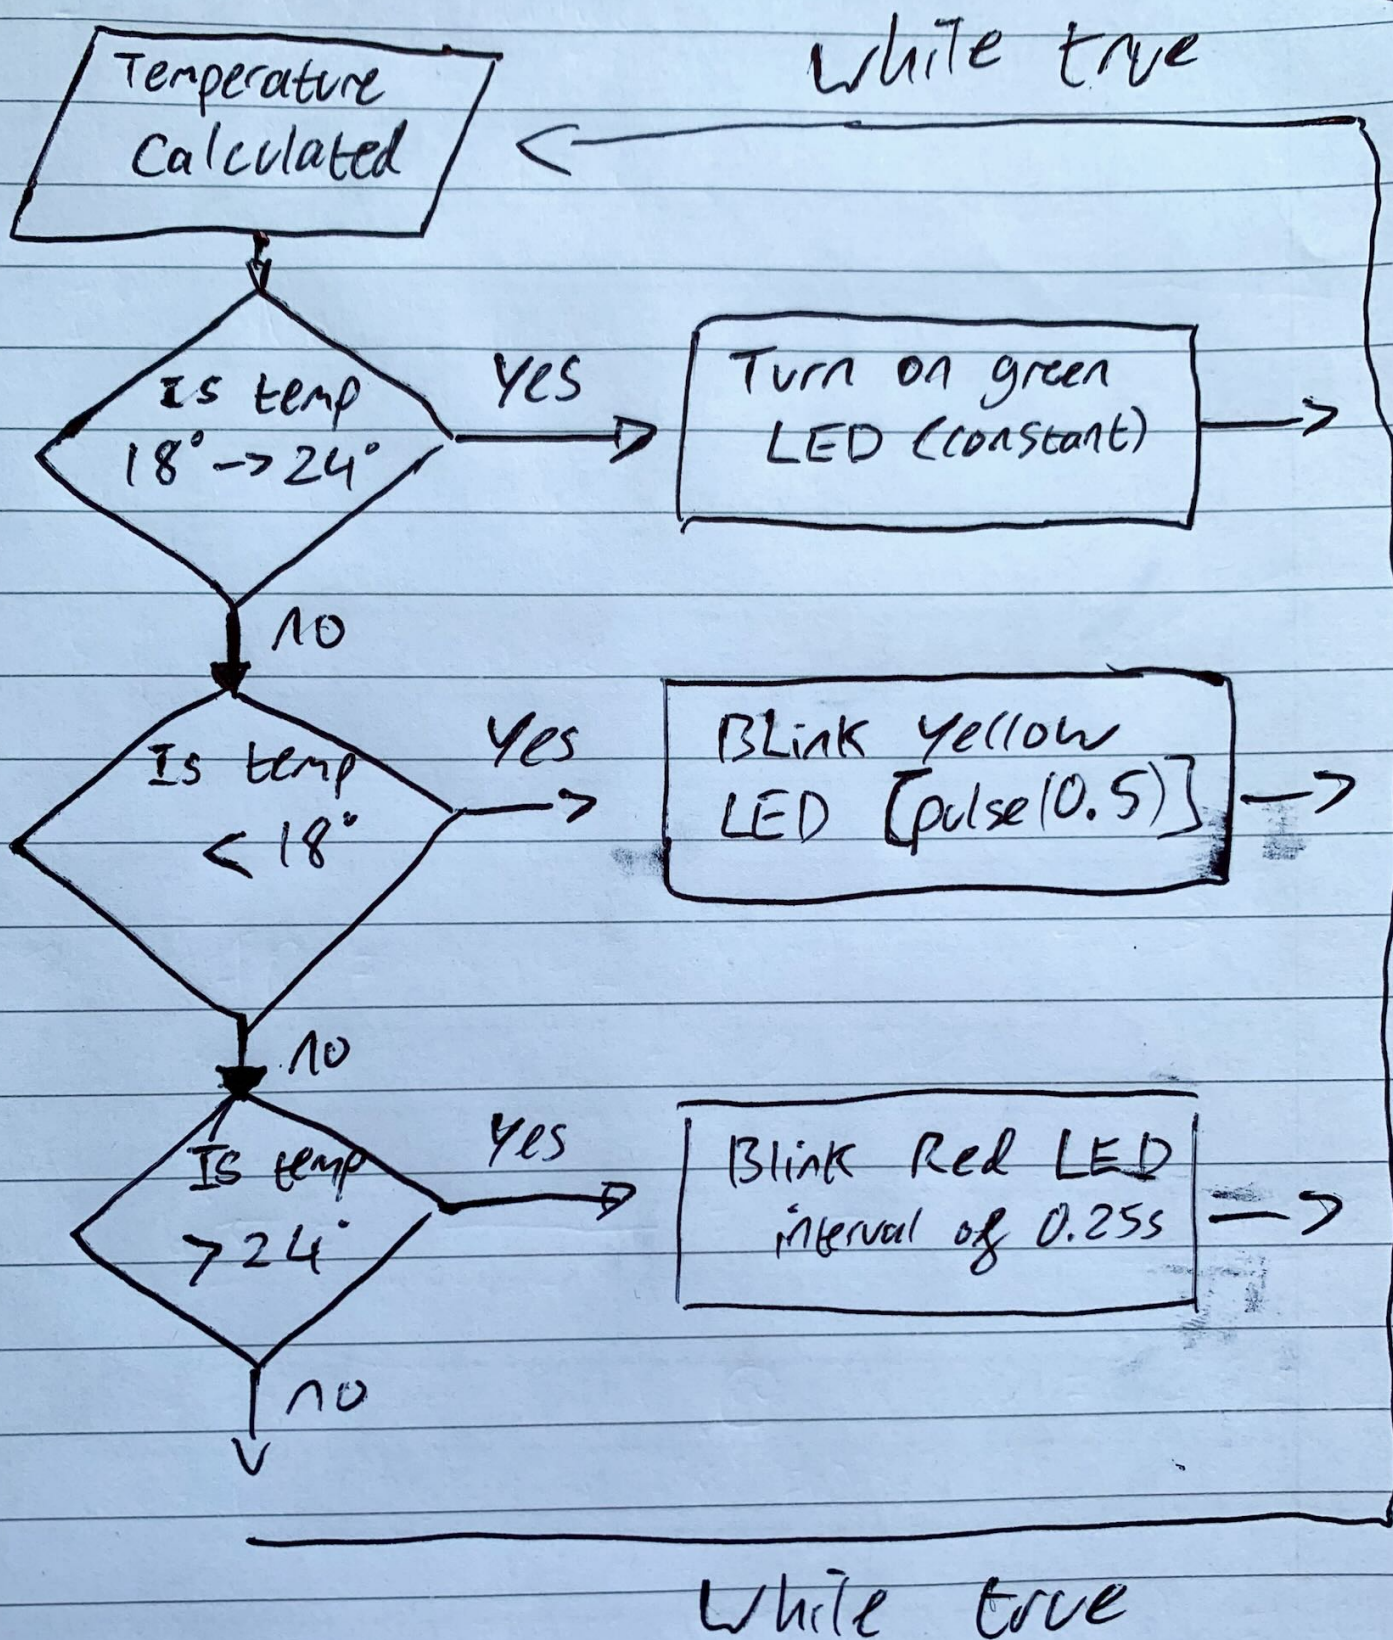 while true
Temperature
Calculated
Is temp
18° -> 24°
Yes
Turn on green
LED (constant)
no
Is temp
< 18°
Yes
Blink yellow
LED [pulse(0.5)]
no
Is temp
> 24°
Yes
Blink Red LED
interval of 0.25s
no
while true